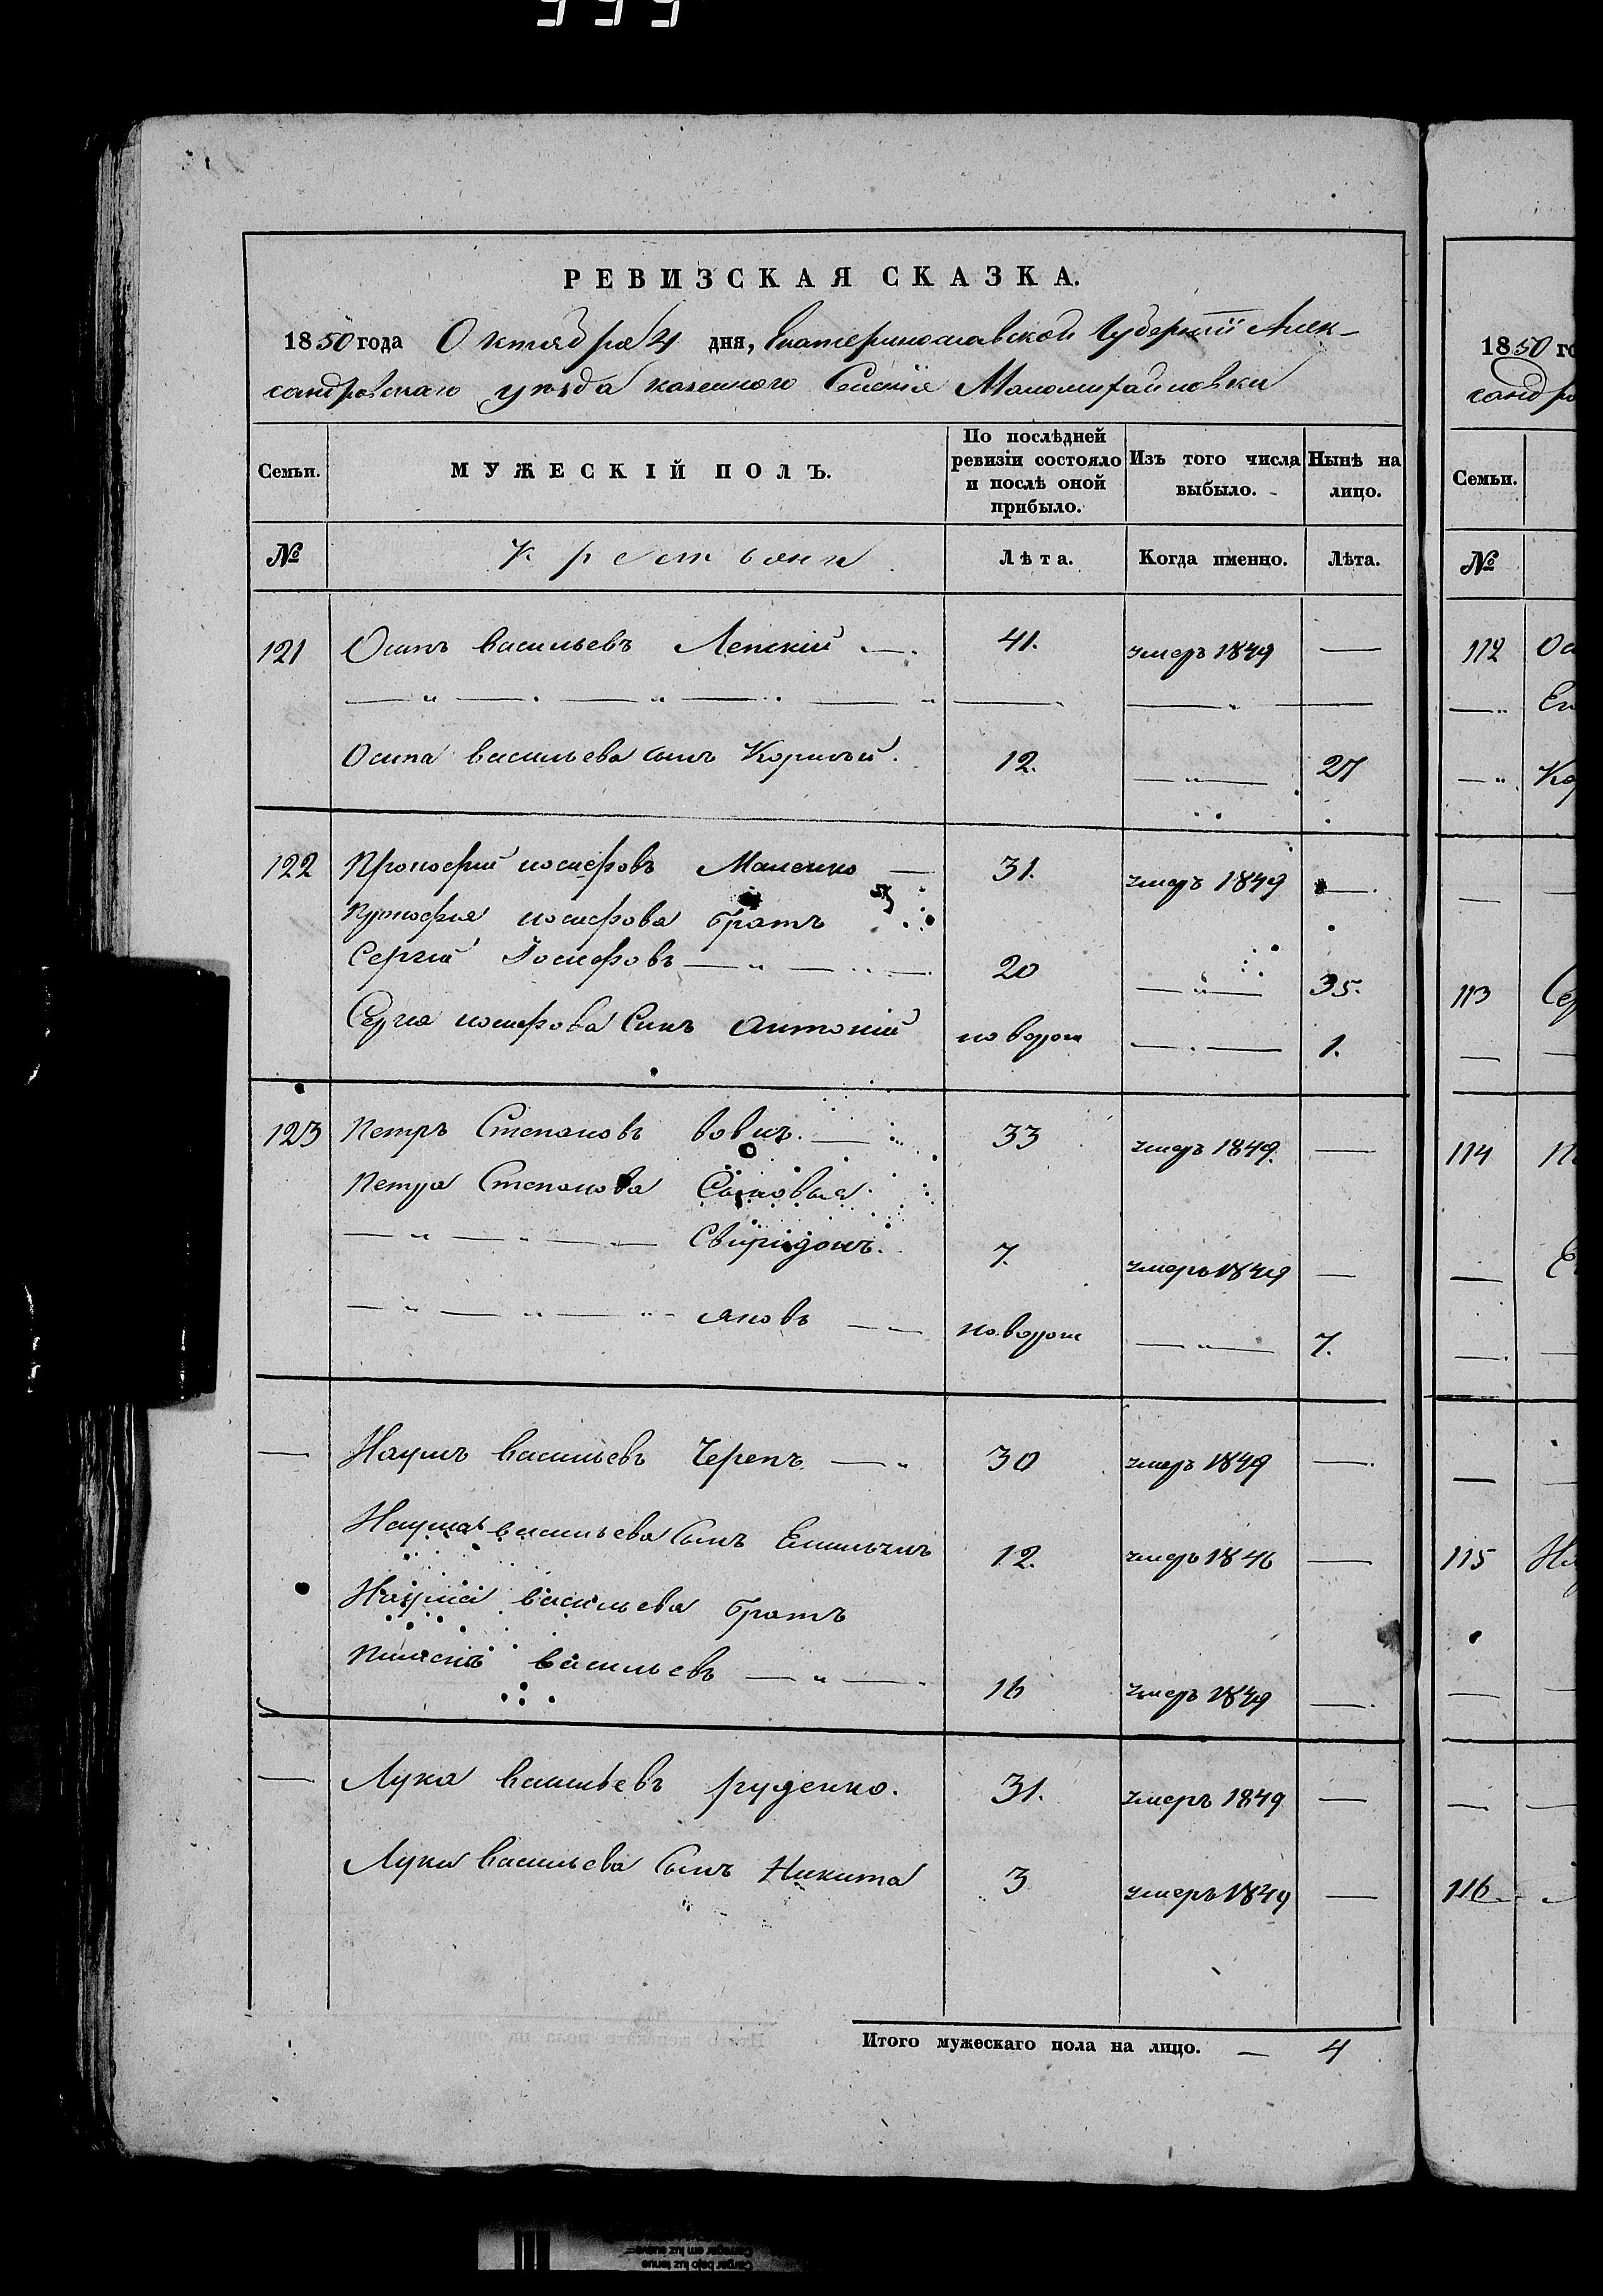 РЕВИЗСКАЯ СКАЗКА.
1850 года Октября 4 дня, Екатеринославской Губернiи Алек-
сандровскаго уѣзда казеннаго Селенiя Маломихайловки
Семьи.
МУЖЕСКIЙ ПОЛЪ.
По послѣдней ревизiи состояло и послѣ оной прибыло.
Изъ того числа выбыло.
Нынѣ на лицо.
№ Крестьяне Лѣта. Когда именно. Лѣта.
121 Осипъ Васильевъ Лепскiй — 41. умеръ 1849 —
Осипа Васильева сынъ Корнѣй. 12. — 27
122 Прокофiй Иосифовъ Маленко — 31. умеръ 1849 —
Прокофiя Иосифова братъ
Сергiй Иосифовъ — 20 — 35.
Сергiя Иосифова Сынъ Антонiй новорож — 1.
123 Петръ Степановъ Вовкъ. — 33 умеръ 1849. —
Петра Степанова Сыновья
Свиридонъ. 7. умеръ 1849 —
Яковъ — новорож — 7.
— Наумъ Васильевъ Черепъ — 30 умеръ 1849 —
Наума Васильева Сынъ 12. умеръ 1846 —
Наума Васильева братъ
Васильевъ — 16 умеръ 1849 —
— Лука Васильевъ Руденко. 31. умеръ 1849 —
Луки Васильева Сынъ Никита 3 умеръ 1849 —
Итого мужескаго пола на лицо. — 4
1850 го
сандро
Семьи.
№
112 Ос
Ко
113 Сер
114 П
115
116